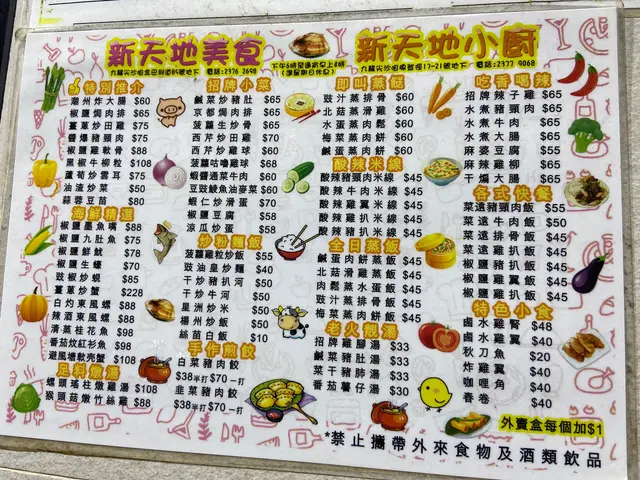 新天地美食
新天地小廚
特別推介
潮州炸大腸 $60
椒鹽焗肉排 $65
薑蔥炒田雞 $75
醬爆豬頸肉 $75
椒鹽雞軟骨 $88
黑椒牛柳粒 $108
露筍炒雲耳 $75
油渣炒菜 $50
蒜蓉豆苗 $80
海鮮精選
椒鹽墨魚嘴 $88
椒鹽九肚魚 $75
椒鹽鮮魷 $78
椒鹽生蠔 $70
豉椒炒蜆 $85
薑蔥炒蟹 $228
白灼東風螺 $88
辣酒東風螺 $88
清蒸桂花魚 $98
番茄炆紅衫魚 $88
避風塘軟壳蟹 $108
足料燉湯
螺頭瑤柱燉雞湯 $108
猴頭菇燉竹絲雞 $88
招牌小菜
鹹菜炒豬肚 $60
京都焗肉排 $65
菠蘿生炒骨 $65
西芹炒田雞 $70
西芹炒雞球 $60
菠蘿咕嚕雞球 $68
蝦醬通菜牛肉 $60
豆豉鯪魚油麥菜 $60
蝦仁炒滑蛋 $70
椒鹽豆腐 $58
涼瓜炒蛋 $58
炒粉麵飯
菠蘿雞粒炒飯 $55
豉油皇炒麵 $40
干炒豬扒河 $50
干炒牛河 $50
星洲炒米 $50
楊州炒飯 $50
絲苗白飯 $10
手作煎餃
白菜豬肉餃
$38半打 $70一打
韭菜豬肉餃
$38半打 $70一打
即叫蒸餸
豉汁蒸排骨 $60
北菇蒸滑雞 $60
水蛋蒸肉鬆 $60
梅菜蒸肉餅 $60
鹹蛋蒸肉餅 $60
酸辣米線
酸辣豬頸肉米線 $45
酸辣牛肉米線 $45
酸辣雞翼米線 $45
酸辣雞扒米線 $45
酸辣豬扒米線 $45
全日蒸飯
鹹蛋肉餅蒸飯 $45
北菇滑雞蒸飯 $45
肉鬆蒸水蛋飯 $45
豉汁蒸排骨飯 $45
梅菜蒸肉餅飯 $45
老火靚湯
招牌雞腳湯 $33
鹹菜豬肚湯 $33
菜干豬肺湯 $33
番茄薯仔湯 $30
吃香喝辣
招牌辣子雞 $65
水煮豬頸肉 $65
水煮牛肉 $65
水煮大腸 $65
麻婆豆腐 $55
麻辣雞柳 $65
干煸大腸 $65
各式快餐
菜遠豬頸肉飯 $55
菜遠牛肉飯 $50
菜遠排骨飯 $45
菜遠雞扒飯 $45
椒鹽豬扒飯 $45
椒鹽雞翼飯 $45
椒鹽雞扒飯 $45
特色小食
鹵水雞腎 $48
鹵水雞翼 $40
秋刀魚 $20
炸雞翼 $40
咖哩角 $40
春卷 $40
外賣盒每個加$1
*禁止攜帶外來食物及酒類飲品